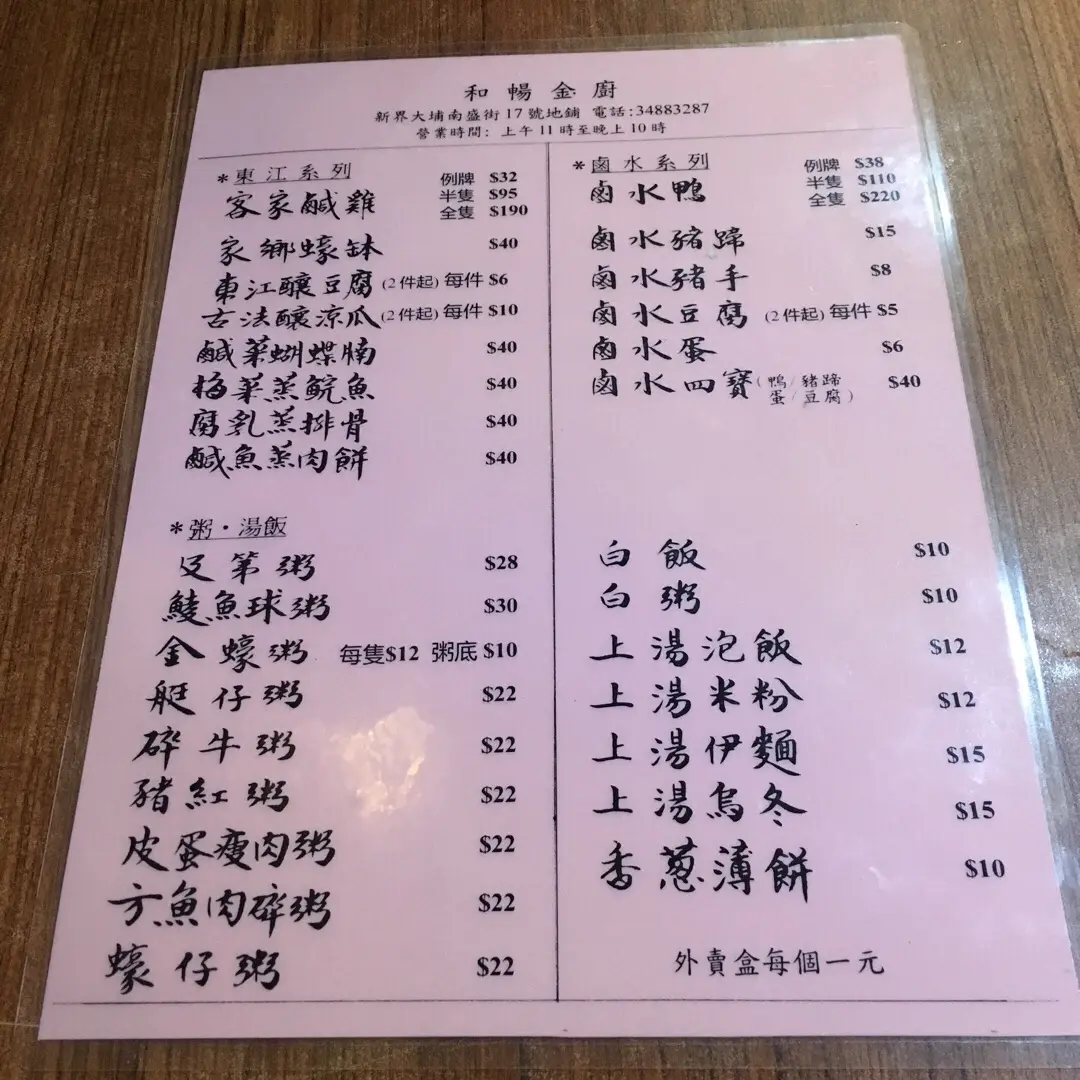 和暢金廚
新界大埔南盛街17號地鋪 電話:34883287
營業時間: 上午11時至晚上10時
*東江系列
客家鹹雞 例牌 $32
半隻 $95
全隻 $190
家鄉蠔缽 $40
東江釀豆腐(2件起)每件 $6
古法釀涼瓜(2件起)每件 $10
鹹菜蝴蝶腩 $40
梅菜蒸鯇魚 $40
腐乳蒸排骨 $40
鹹魚蒸肉餅 $40
*粥·湯飯
及第粥 $28
鯪魚球粥 $30
金蠔粥 每隻$12 粥底$10
艇仔粥 $22
碎牛粥 $22
豬紅粥 $22
皮蛋瘦肉粥 $22
方魚肉碎粥 $22
蠔仔粥 $22
*鹵水系列
鹵水鴨 例牌 $38
半隻 $110
全隻 $220
鹵水豬蹄 $15
鹵水豬手 $8
鹵水豆腐 (2件起)每件 $5
鹵水蛋 $6
鹵水四寶(鴨/豬蹄 $40
蛋/豆腐)
白飯 $10
白粥 $10
上湯泡飯 $12
上湯米粉 $12
上湯伊麵 $15
上湯烏冬 $15
香蔥薄餅 $10
外賣盒每個一元